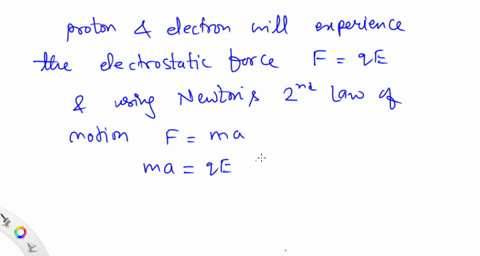 proton & electron will experience
the electrostatic force F = qE
& using Newton's 2nd Law of
motion F = ma
ma = qE